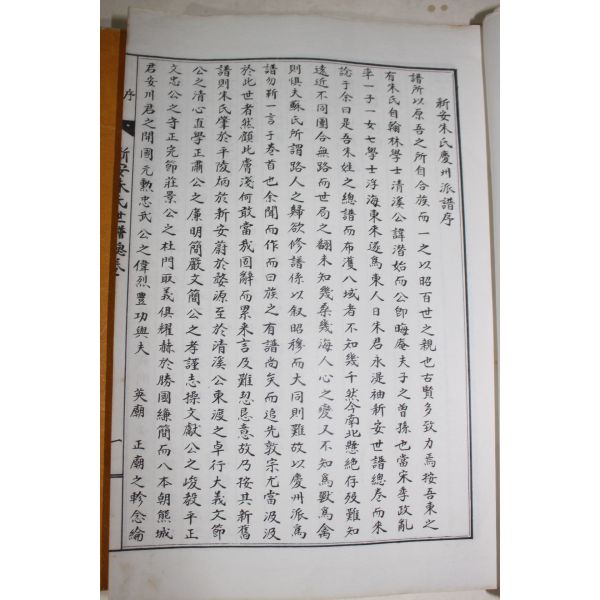 新安朱氏慶州派譜序
譜所以原吾之所自合族而一之以昭百世之親也古賢多致力焉按吾東之
有朱氏自翰林學士清溪公諱潛始而公卽晦庵夫子之曾孫也當宋季政亂
率一子一女七學士浮海東來遂爲東人日朱君永湜袖新安世譜總卷而來
諗于余曰是吾朱姓之總譜而布濩八域者不知幾千然今南北懸絶存歿難知
遠近不同團合無路而世局之翻未知幾桑幾海人心之變又不知爲獸爲禽
則惧夫蘇氏所謂路人之歸欲修譜係以叙昭穆而大同則難故以慶州派爲
譜勿靳一言于卷首也余聞而作而曰族之有譜尚矣而追先敦宗尤當汲汲
於此世者然顧此膚淺何敢當哉固辭而累來言及難恝意故乃按其新舊
譜則朱氏肇於平陵炳於新安蔚於婺源至於清溪公東渡之卓行大義文節
公之清心直學正肅公之廉明簡嚴文簡公之孝謹志操文獻公之峻毅平正
文忠公之守正完節莊景公之杜門取義俱耀赫於勝國縑簡而八本朝熊城
君安川君之開國元勲忠武公之偉烈豊功與夫 英廟 正廟之軫念綸
序 新安朱氏世譜總卷 一